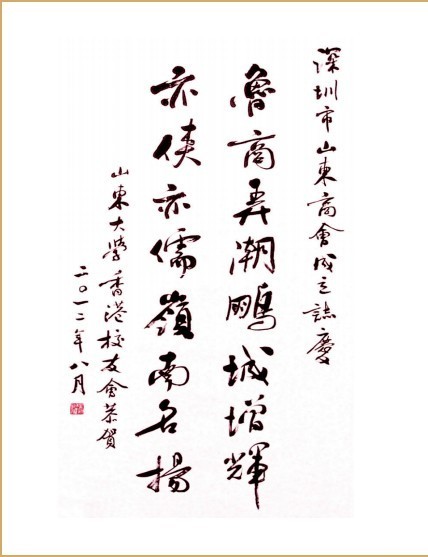 深圳市山東商會成立誌慶
魯商弄潮鵬城增輝
亦俠亦儒嶺南名揚
山東大學香港校友會恭賀
二〇一二年八月